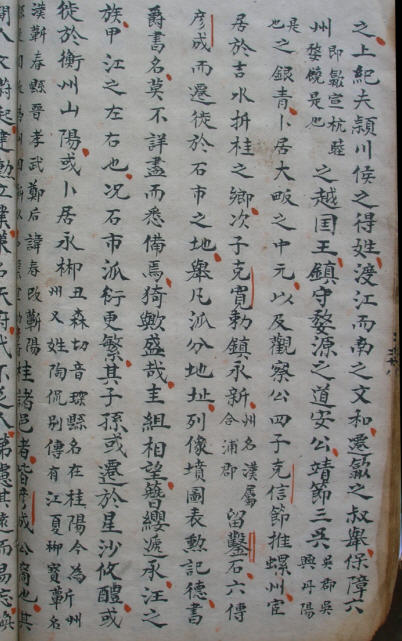 之上紀夫潁川侯之得姓渡江而南之文和遷歙之叔舉保障六
州即歙宣杭睦婺饒是也之越囯王鎮守婺源之道安公靖節三吳吳郡吳興丹陽
是也之銀青卜居大畈之中元以及觀察公四子克信節推螺州宦
居於吉水拆桂之鄉次子克寬勅鎮永新州名漢屬合浦郡留鑿石六傳
彥成而遷徙於石市之地舉凡派分地址列像墳圖表勲記德書
爵書名莫不詳盡而悉備焉猗歟盛哉圭組相望簪纓遞承汪之
族甲江之左右也况石市派衍更繁其子孫或遷於星沙攸醴或
徙於衡州山陽或卜居永郴丑森切音琛縣名在桂陽今為州又姓陶侃別傳有江夏郴寶蘄名
漢蘄春縣晉孝武鄭后諱春改蘄陽桂諸邑者皆彥成公裔也其